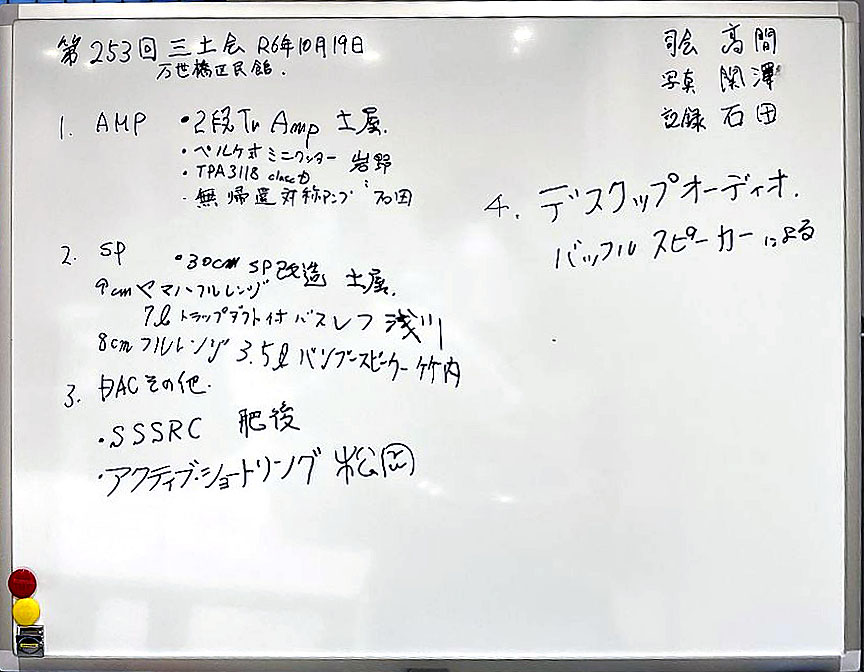 第253回 三土会 R6年10月19日
万世橋区民館.
司会 高間
写真 関澤
記録 石田
1. AMP ・2段Tr Amp 土屋.
・ペルケ式ミニワッター 岩野
・TPA3118 classD
・無帰還対称アンプ 石田
2. SP ・30cm SP改造 土屋.
9cmヤマハフルレンジ
7ℓトラップダクト付バスレフ 浅川
8cmフルレンジ 3.5ℓバンブースピーカー 竹内
3. DACその他.
・SSSRC 肥後
・アクティブ・ショートリング 松岡
4. デスクップオーディオ.
バッフルスピーカーによる